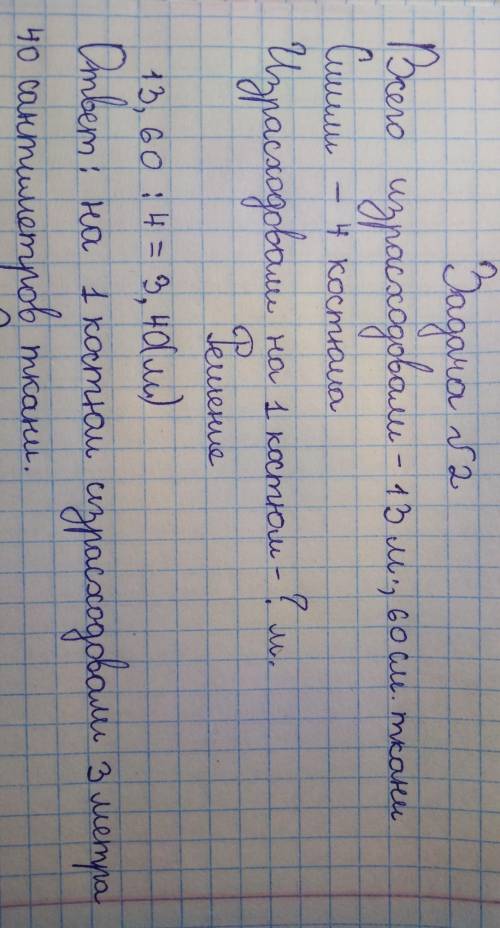 Задача №2
Всего израсходовали - 13 м., 60 см. ткани
Сшили - 4 костюма
Израсходовали на 1 костюм - ? м.
Решение
13,60 : 4 = 3,40(м)
Ответ: на 1 костюм израсходовали 3 метра
40 сантиметров ткани.